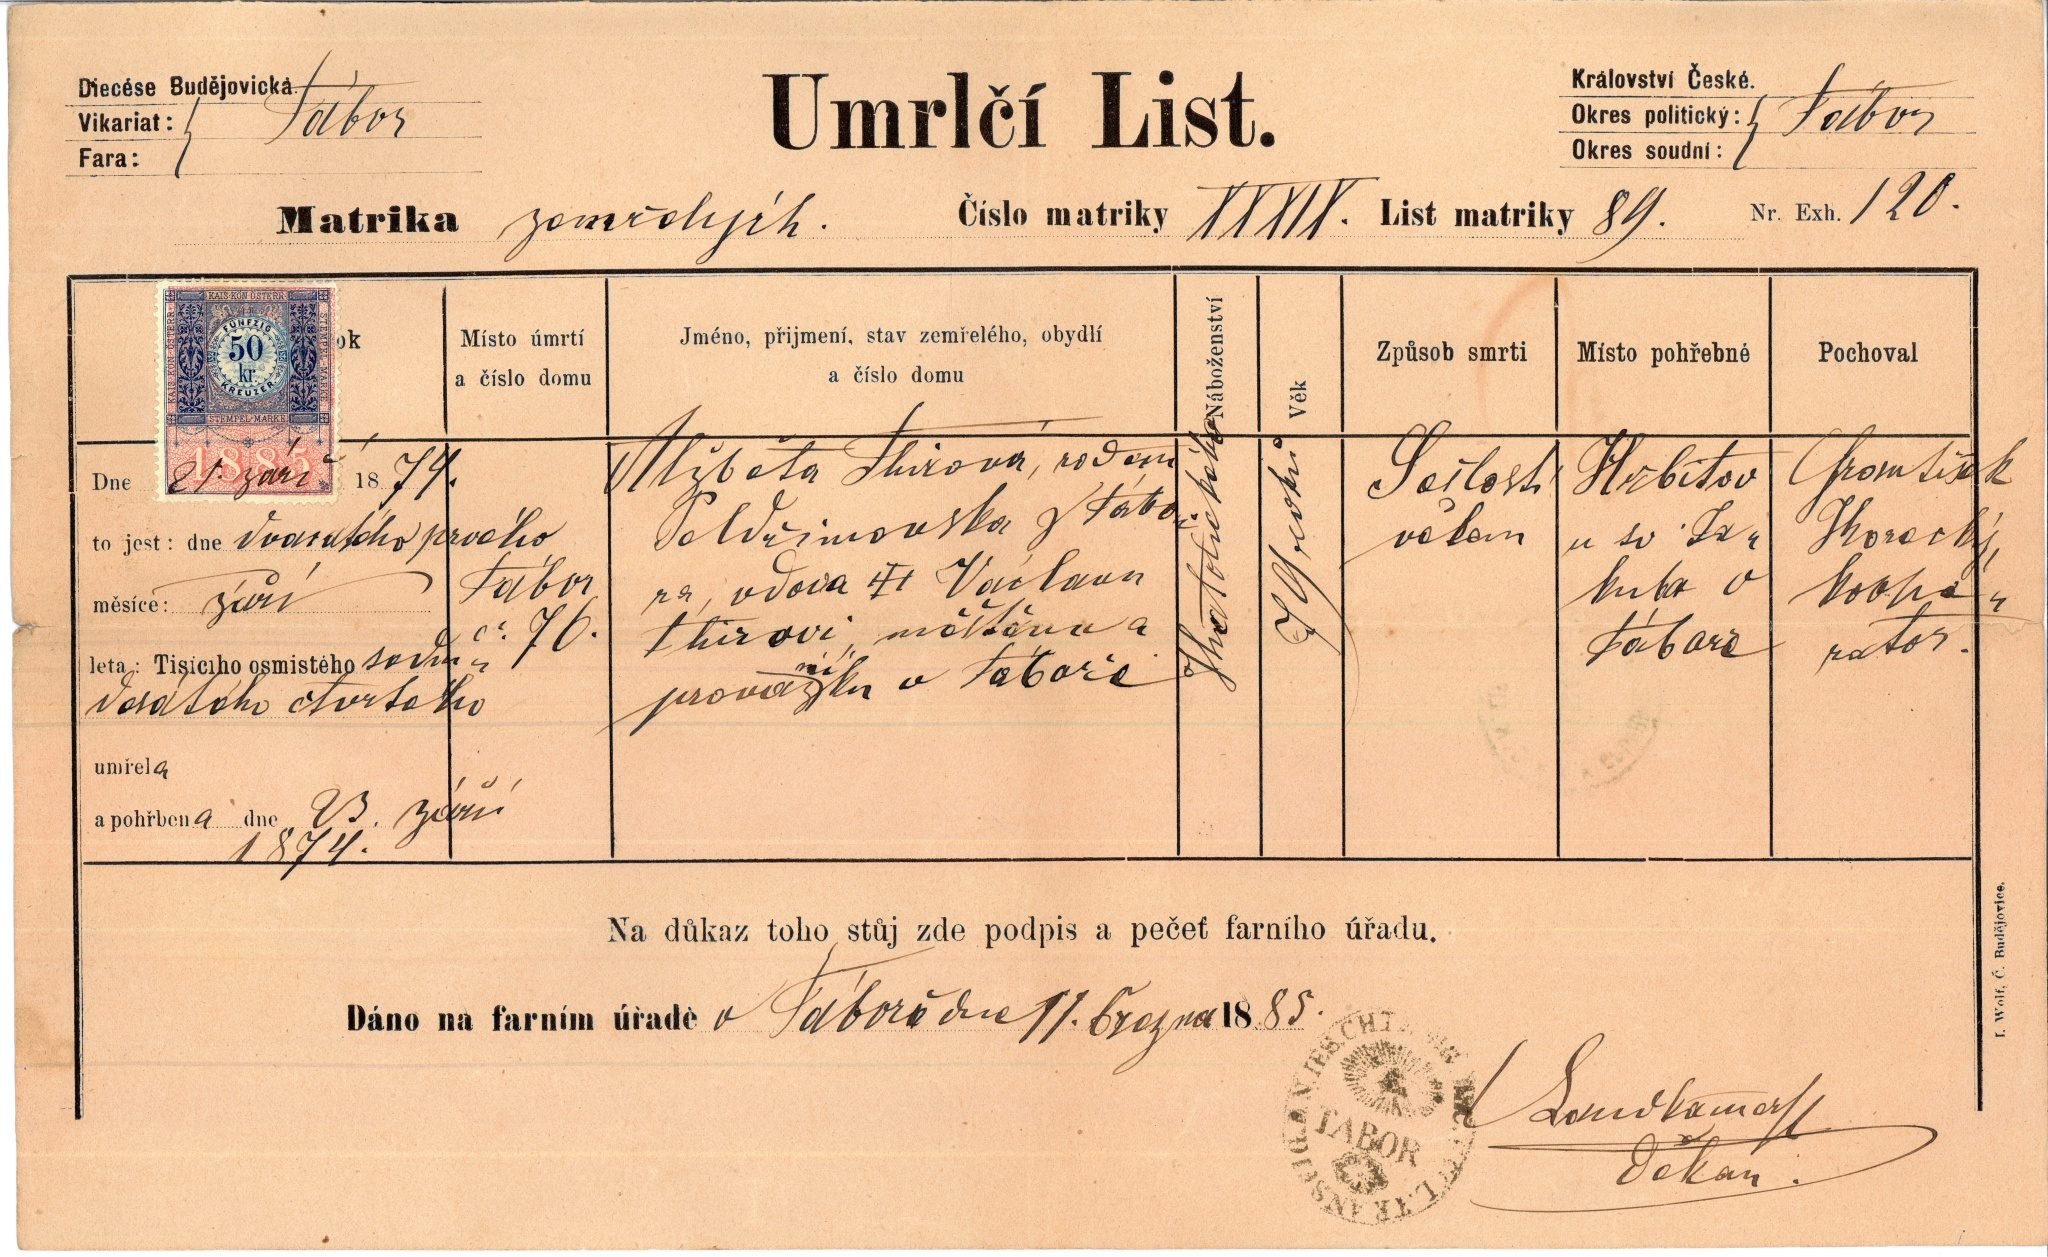 Diecése Budějovická.
Vikariat: Tábor
Fara:
Umrlčí List.
Království České.
Okres politický: Tábor
Okres soudní:
Matrika zemřelých. Číslo matriky XXXIX. List matriky 89. Nr. Exh. 120.
KAIS. KÖN. ÖSTERR.
STEMPEL-MARKE
FÜNFZIG
50
kr.
KREUZER
STEMPEL-MARKE
1885
ok
Místo úmrtí
a číslo domu
Jméno, přijmení, stav zemřelého, obydlí
a číslo domu
Náboženství
Věk
Způsob smrti
Místo pohřebné
Pochoval
Dne 21. září 1874.
to jest: dne dvacátého prvého
měsíce: září
leta: Tisícího osmistého sedm
desátého čtvrtého
umřela
a pohřbena dne 23. září
1874.
Tábor
č. 76.
Alžběta Thirová, rozen
Peldřimovska z Tábo
ra, vdova po Václavu
Thirovi, měštanu a
provazníku v Táboře
Katolického
79 roků
Sešlost
věkem
Hřbitov
u sv. Ja
kuba v
Táboře
František
Horecký,
koope
rator.
Na důkaz toho stůj zde podpis a pečeť farního úřadu.
Dáno na farním úřadě v Táboře dne 11. března 1885.
TABOR
děkan.
I. Wolf, Č. Budějovice.